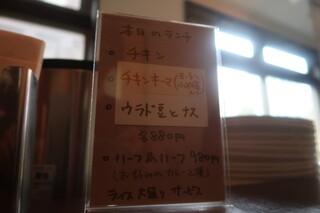 本日のランチ
・チキン
・チキンキーマ
・ウラド豆とナス
各880円
・ハーフ&ハーフ 980円
(お好みのカレー2種)
ライス大盛りサービス